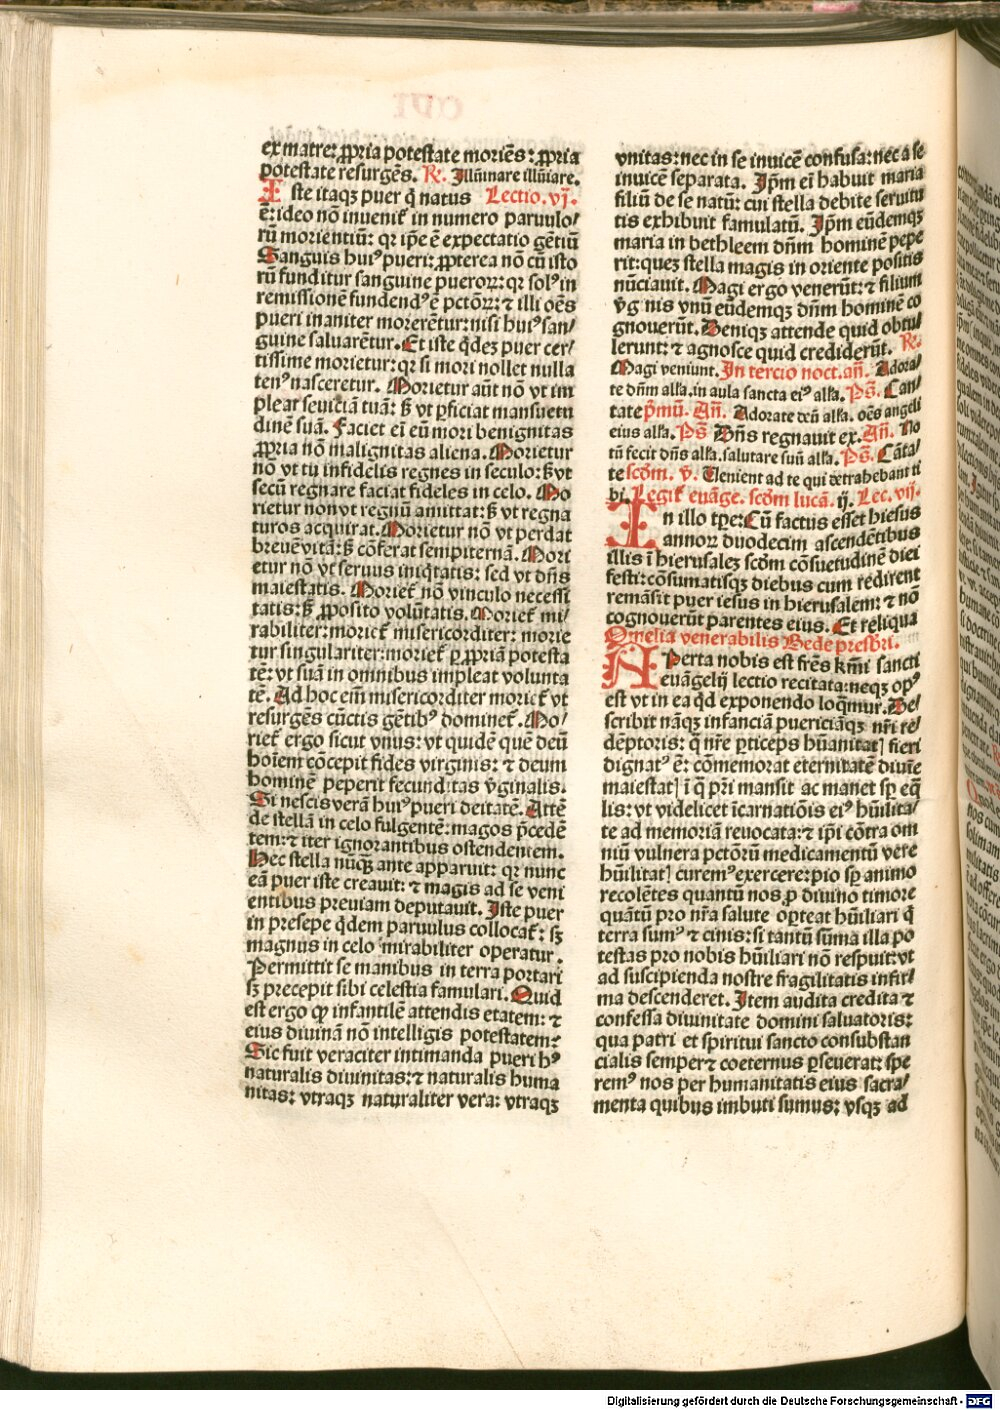 ex matre: ꝓpria potestate moriēs: ꝓpria
potestate resurgēs. ℟. Illūinare illūiare.
Iste itaqꝫ puer q̄ natus Lectio. vj.
ē: ideo nō inuenit̄ in numero paruulo/
rū morientiū: qꝛ ip̄e ē expectatio gētiū
Sanguis huiꝰ pueri: ꝓpterea nō cū isto
rū funditur sanguine pueroꝝ: qꝛ solꝰ in
remissionē fundendꝰ ē pctōꝝ: ⁊ illi oēs
pueri inaniter morerētur: nisi huiꝰ san/
guine saluarētur. Et iste q̄dez puer cer/
tissime morietur: qꝛ si mori nollet nulla
tenꝰ nasceretur. Morietur aūt nō vt im
pleat seuiciā tuā: s̄ vt ꝑficiat mansuetu
dinē suā. Faciet eī eū mori benignitas
ꝓpria nō malignitas aliena. Morietur
nō vt tu infidelis regnes in seculo: s̄ vt
secū regnare faciat fideles in celo. Mo
rietur non vt regnū amittat: s̄ vt regna
turos acquirat. Morietur nō vt perdat
breuē vitā: s̄ cōferat sempiternā. Mori
etur nō vt seruus iniq̄tatis: sed vt dn̄s
maiestatis. Moriet̄ nō vinculo necessi
tatis: s̄ ꝓposito volūtatis. Moriet̄ mi/
rabiliter: moriet̄ misericorditer: morie
tur singulariter: moriet̄ ꝑ ꝓpriā potesta
tē: vt suā in omnibus impleat volunta
tē. Ad hoc eim̄ misericorditer moriet̄ vt
resurgēs cūctis gētibꝰ dominet̄. Mo/
riet̄ ergo sicut vnus: vt quidē quē deū
hoīem cōcepit fides virginis: ⁊ deum
hominē peperit fecunditas v̄ginalis.
Si nescis verā huiꝰ pueri deitatē. Attē
de stellā in celo fulgentē: magos p̄cedē
tem: ⁊ iter ignorantibus ostendentem.
Hec stella nūq̄ꝫ ante apparuit: qꝛ nunc
eā puer iste creauit: ⁊ magis ad se veni
entibus preuiam deputauit. Iste puer
in presepe q̄dem paruulus collocat̄: sꝫ
magnus in celo mirabiliter operatur.
Permittit se manibus in terra portari
sꝫ precepit sibi celestia famulari. Quid
est ergo ꝙ infantilē attendis etatem: ⁊
eius diuinā nō intelligis potestatem:
Sic fuit veraciter intimanda pueri hꝰ
naturalis diuinitas: ⁊ naturalis huma
nitas: vtraqꝫ naturaliter vera: vtraqꝫ
vnitas: nec in se inuicē confusa: nec a se
inuicē separata. Ip̄m eī habuit maria
filiū de se natū: cui stella debite seruitu
tis exhibuit famulatū. Ip̄m eūdemqꝫ
maria in bethleem dn̄m hominē pepe
rit: quez stella magis in oriente positis
nūciauit. Magi ergo venerūt: ⁊ filium
v̄g nis vnū eūdemqꝫ dn̄m hominē co
gnouerūt. Deniqꝫ attende quid obtu/
lerunt: ⁊ agnosce quid crediderūt. ℟.
Magi veniunt. In tercio noct. an̄. Adora/
te dn̄m alła. in aula sancta eiꝰ alła. Ps̄. Can/
tate p̄mū. An̄. Adorate deū alła. oēs angeli
eius alła. Ps̄ Dn̄s regnauit ex. An̄. No
tū fecit dn̄s alła. salutare suū alła. Ps̄. Cāta/
te scdm̄. v̄. Uenient ad te qui detrahebant ti
bi. Legit̄ euāge. scdm̄ lucā. ij. Lec. vij.
In illo tp̄e: Cū factus esset hiesus
annoꝝ duodecim ascendētibus
illis ī hierusalez scdm̄ cōsuetudinē diei
festi: cōsumatisqꝫ diebus cum redirent
remāsit puer iesus in hierusalem: ⁊ nō
cognouerūt parentes eius. Et reliqua
Omelia venerabilis Bede presbri.
APerta nobis est fr̄es km̄i sancti
euāgelij lectio recitata: neqꝫ opꝰ
est vt in ea q̄d exponendo loq̄mur. De/
scribit nāqꝫ infanciā puericiāqꝫ nr̄i re/
dēptoris: q̄ nr̄e ꝑticeps hūanitat] fieri
dignatꝰ ē: cōmemorat eternitatē diuīe
maiestat] ī q̄ pr̄i mansit ac manet sꝑ eq̄
lis: vt videlicet īcarnatiōis eiꝰ hūilita/
te ad memoriā reuocata: ⁊ ip̄i cōtra om
niū vulnera pctōrū medicamentū vere
hūilitat] curemꝰ exercere: pio sꝑ animo
recolētes quantū nos ꝓ diuino timore
quātū pro nr̄a salute oꝑteat hūiliari q̄
terra sumꝰ ⁊ cinis: si tantū sūma illa po
testas pro nobis hūiliari nō respuit: vt
ad suscipienda nostre fragilitatis infir/
ma descenderet. Item audita credita ⁊
confessa diuinitate domini saluatoris:
qua patri et spiritui sancto consubstan
cialis semper ⁊ coeternus ꝑseuerat: spe
remꝰ nos per humanitatis eius sacra/
menta quibus imbuti sumus: vsqꝫ ad
Digitalisierung gefördert durch die Deutsche Forschungsgemeinschaft - DFG